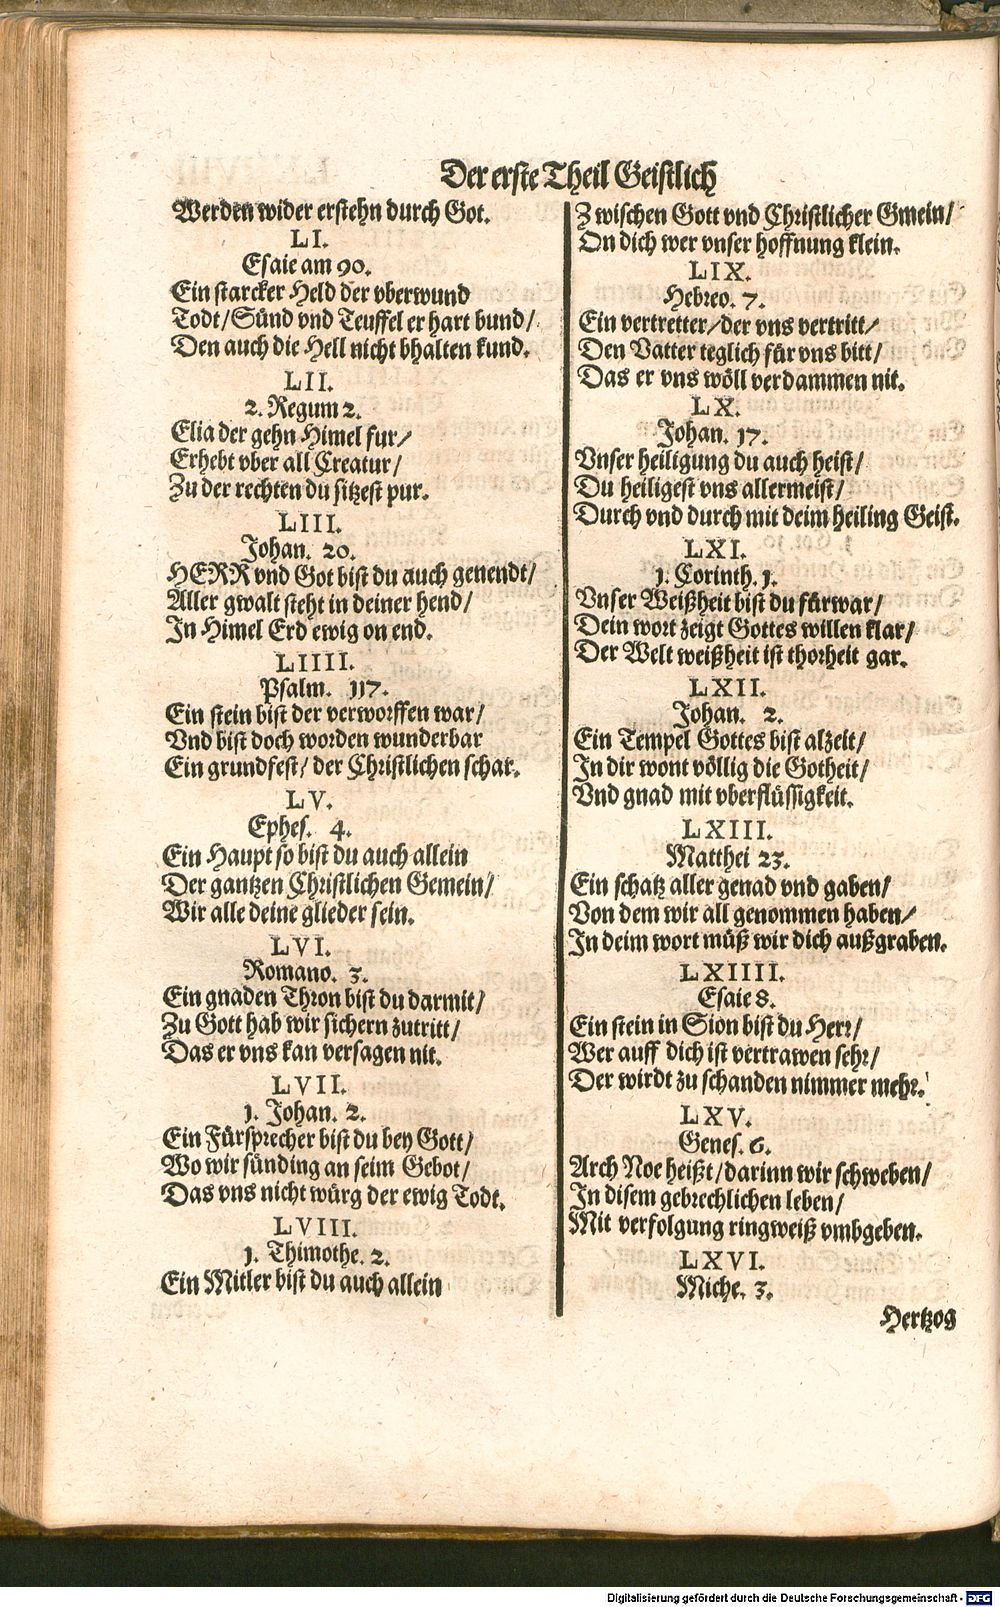 Der erste Theil Geistlich
Werden wider erstehn durch Got.
LI.
Esaie am 90.
Ein starcker Held der vberwund
Todt/Sünd vnd Teuffel er hart bund/
Den auch die Hell nicht bhalten kund.
LII.
2. Regum 2.
Elia der gehn Himel fur/
Erhebt vber all Creatur/
Zu der rechten du sitzest pur.
LIII.
Johan. 20.
HERR vnd Got bist du auch genendt/
Aller gwalt steht in deiner hend/
In Himel Erd ewig on end.
LIIII.
Psalm. 117.
Ein stein bist der verworffen war/
Vnd bist doch worden wunderbar
Ein grundfest/ der Christlichen schar.
LV.
Ephes. 4.
Ein Haupt so bist du auch allein
Der gantzen Christlichen Gemein/
Wir alle deine glieder sein.
LVI.
Romano. 3.
Ein gnaden Thron bist du darmit/
Zu Gott hab wir sichern zutritt/
Das er vns kan versagen nit.
LVII.
1. Johan. 2.
Ein Fürsprecher bist du bey Gott/
Wo wir sünding an seim Gebot/
Das vns nicht würg der ewig Todt.
LVIII.
1. Thimothe. 2.
Ein Mitler bist du auch allein
Zwischen Gott vnd Christlicher Gmein/
On dich wer vnser hoffnung klein.
LIX.
Hebreo. 7.
Ein vertretter/der vns vertritt/
Den Vatter teglich für vns bitt/
Das er vns wöll verdammen nit.
LX.
Johan. 17.
Vnser heiligung du auch heist/
Du heiligest vns allermeist/
Durch vnd durch mit deim heiling Geist.
LXI.
1. Corinth. 1.
Vnser Weißheit bist du fürwar/
Dein wort zeigt Gottes willen klar/
Der Welt weißheit ist thorheit gar.
LXII.
Johan. 2.
Ein Tempel Gottes bist alzeit/
In dir wont völlig die Gotheit/
Vnd gnad mit vberflüssigkeit.
LXIII.
Matthei 23.
Ein schatz aller genad vnd gaben/
Von dem wir all genommen haben/
In deim wort müß wir dich außgraben.
LXIIII.
Esaie 8.
Ein stein in Sion bist du Herr/
Wer auff dich ist vertrawen sehr/
Der wirdt zu schanden nimmer mehr.
LXV.
Genes. 6.
Arch Noe heißt/darinn wir schweben/
In disem gebrechlichen leben/
Mit verfolgung ringweiß vmbgeben.
LXVI.
Miche. 3.
Hertzog
Digitalisierung gefördert durch die Deutsche Forschungsgemeinschaft - DFG